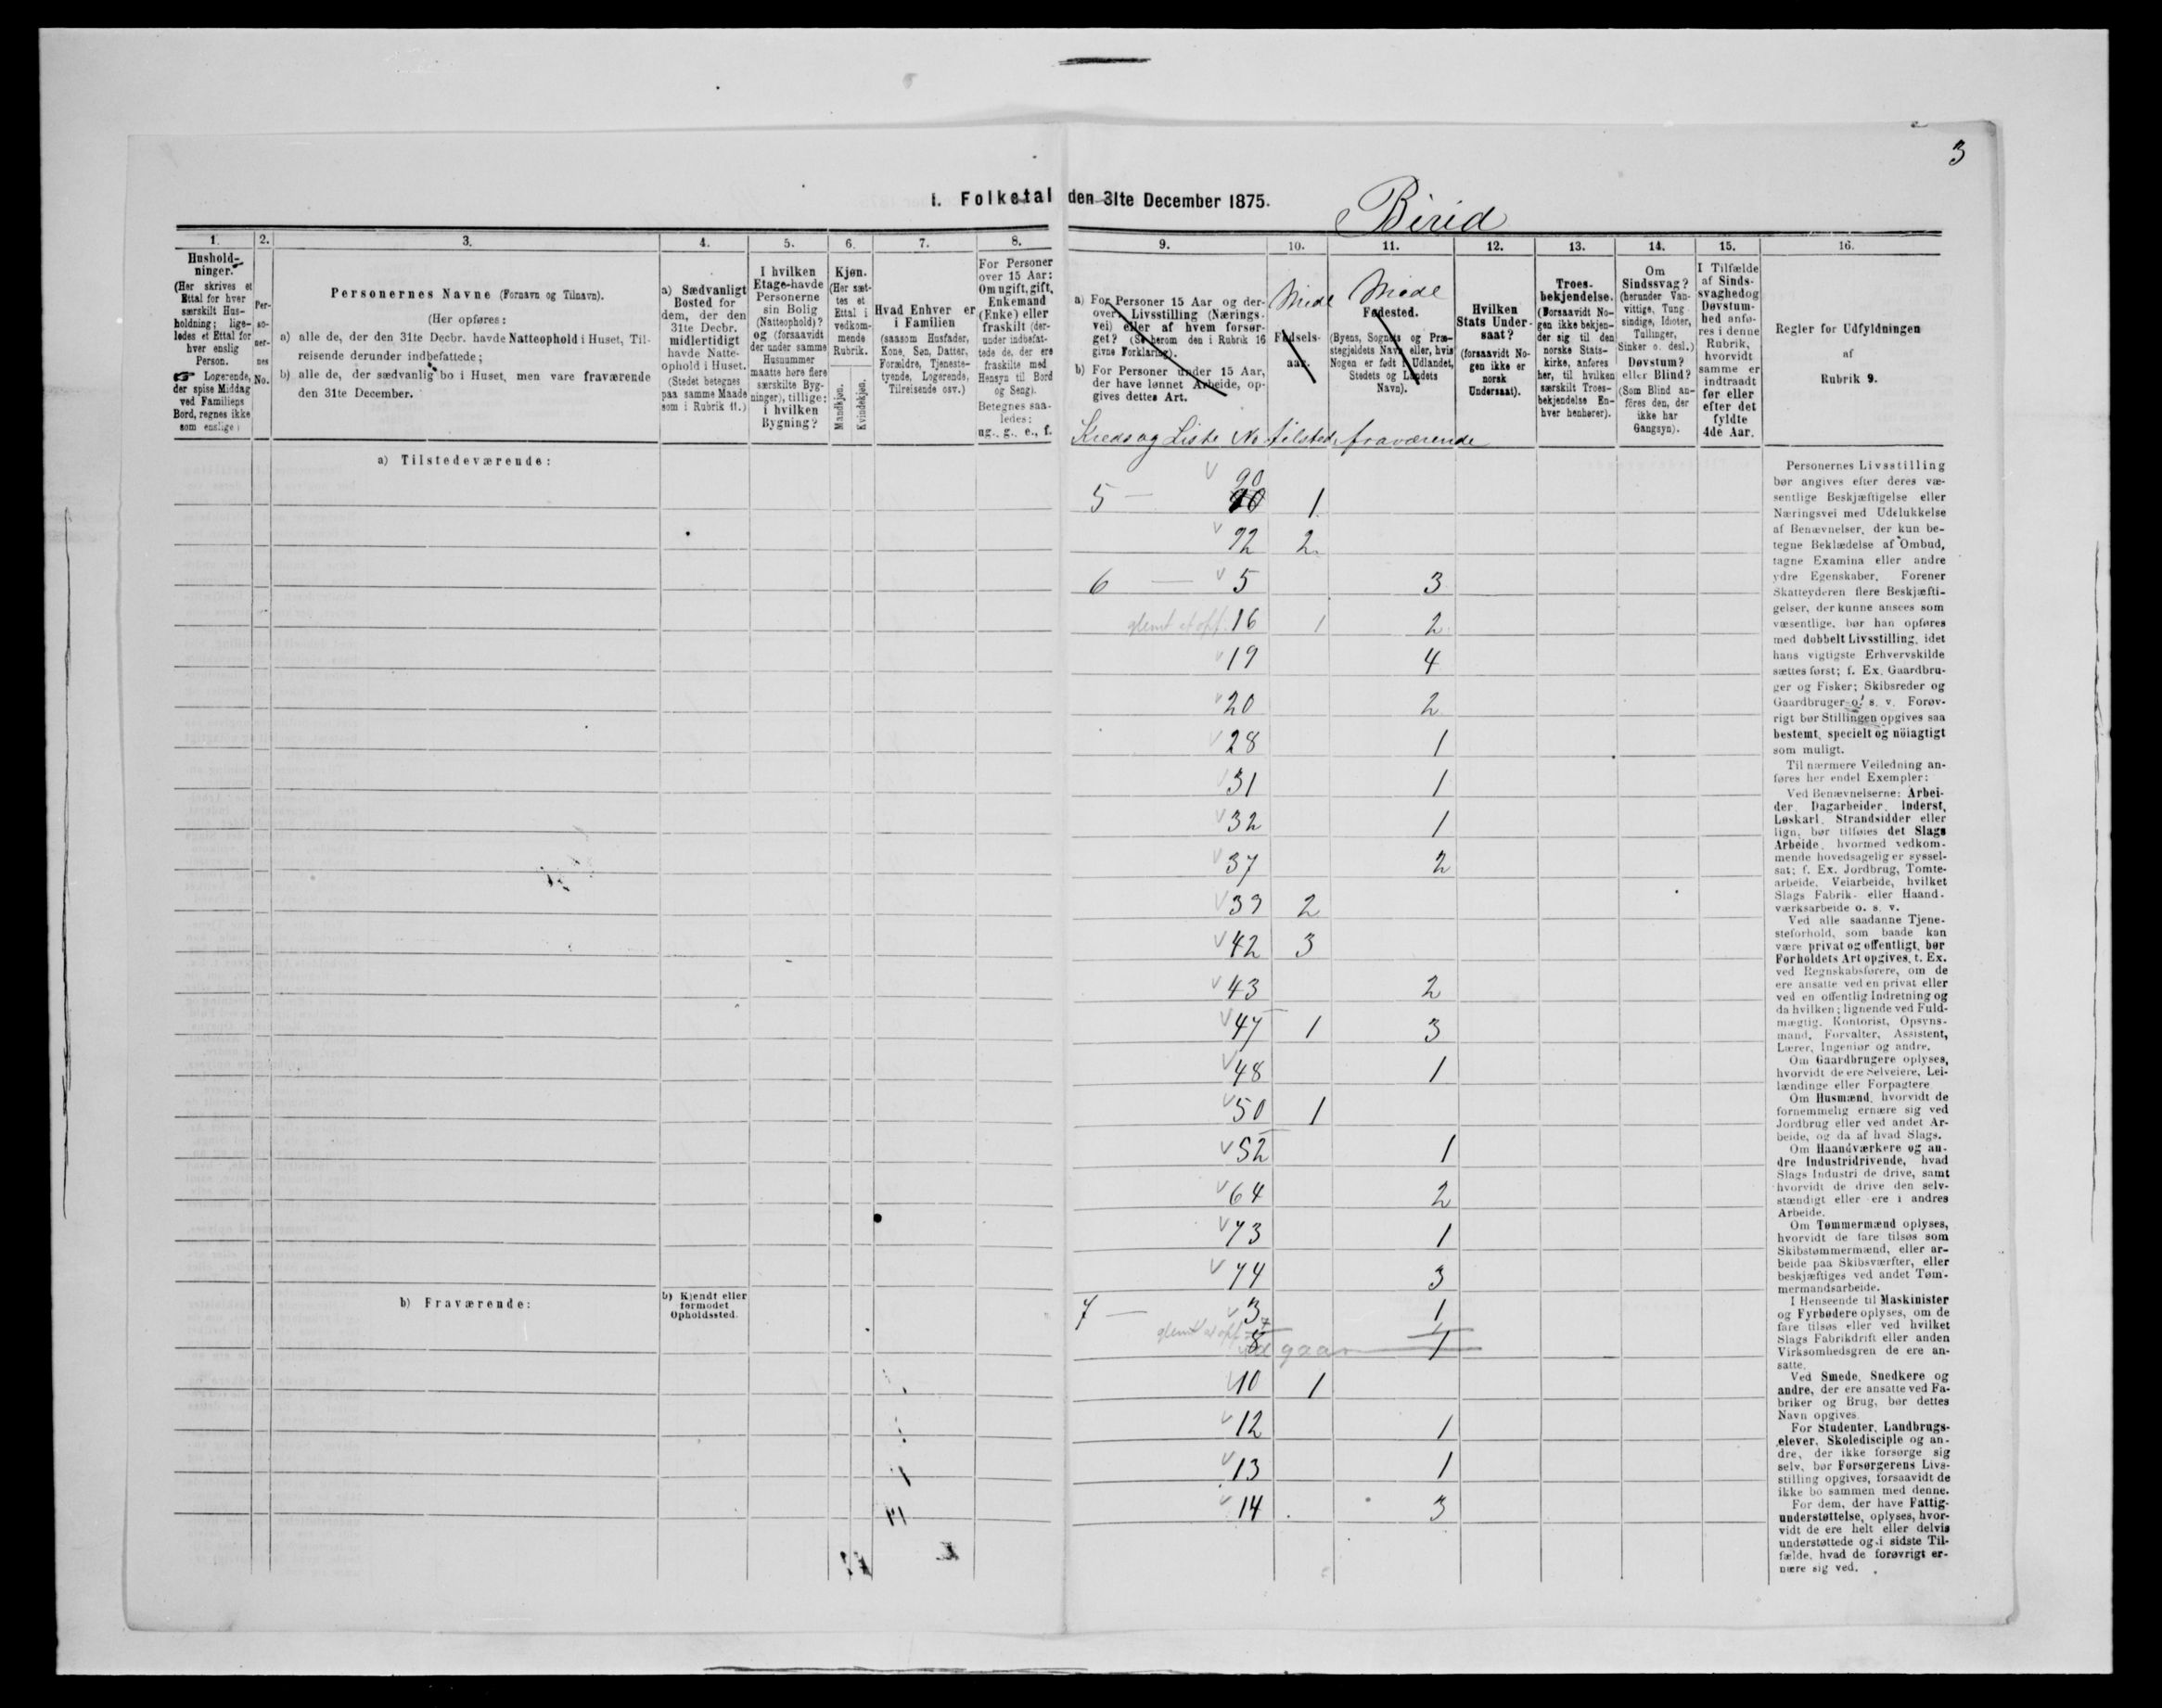 3
1. Folketal den 31te December 1875.
Birid
1.
Hushold-
ninger.
(Her skrives et
Ettal for hver
særskilt Hus-
holdning; lige-
ledes et Ettal for
hver enslig
Person.
☞ Logerende,
der spise Middag
ved Familiens
Bord, regnes ikke
som enslige)
2.
Per-
so-
ner-
nes
No.
3.
Personernes Navne (Fornavn og Tilnavn).
(Her opføres:
a) alle de, der den 31te Decbr. havde Natteophold i Huset, Til-
reisende derunder indbefattede;
b) alle de, der sædvanlig bo i Huset, men vare fraværende
den 31te December.
4.
a) Sædvanligt
Bosted for
dem, der den
31te Decbr.
midlertidigt
havde Natte-
ophold i Huset.
(Stedet betegnes
paa samme Maade
som i Rubrik 11.)
5.
I hvilken
Etage havde
Personerne
sin Bolig
(Natteophold)?
og (forsaavidt
der under samme
Husnummer
maatte høre flere
særskilte Byg-
ninger), tillige:
i hvilken
Bygning?
6.
Kjøn.
(Her sæt-
tes et
Ettal i
vedkom-
mende
Rubrik.
Mandkjøn.
Kvindekjøn.
7.
Hvad Enhver er
i Familien
(saasom Husfader,
Kone, Søn, Datter,
Forældre, Tjeneste-
tyende, Logerende,
Tilreisende osv.)
8.
For Personer
over 15 Aar:
Om ugift, gift,
Enkemand
(Enke) eller
fraskilt (der-
under indbefat-
tede de, der ere
fraskilte med
Hensyn til Bord
og Seng).
Betegnes saa-
ledes:
ug., g., e., f.
9.
a) For Personer 15 Aar og der-
over: Livsstilling (Nærings-
vei) eller af hvem forsør-
get? (Se herom den i Rubrik 16
givne Forklaring).
b) For Personer under 15 Aar,
der have lønnet Arbeide, op-
gives dettes Art.
10.
Mide
Fødsels-
aar.
11.
Mide
Fødested.
(Byens, Sognets og Præ-
stegjeldets Navn eller, hvis
Nogen er født i Udlandet,
Stedets og Landets
Navn).
12.
Hvilken
Stats Under-
saat?
(forsaavidt No-
gen ikke er
norsk
Undersaat).
13.
Troes-
bekjendelse.
(Forsaavidt No-
gen ikke bekjen-
der sig til den
norske Stats-
kirke, anføres
her, til hvilken
særskilt Troes-
bekjendelse En-
hver henhører).
14.
Om
Sindssvag?
(herunder Van-
vittige, Tung-
sindige, Idioter,
Tullinger,
Sinker o. desl.)
Døvstum?
eller Blind?
(Som Blind an-
føres den, der
ikke har
Gangsyn).
15.
I Tilfælde
af Sinds-
svaghed og
Døvstum-
hed anfø-
res i denne
Rubrik,
hvorvidt
samme er
indtraadt
før eller
efter det
fyldte
4de Aar.
16.
Regler for Udfyldningen
af
Rubrik 9.
Kreds og Liste No tilsted. fraværende
a) Tilstedeværende:
5 — 20 1
22 2
6 — 5 3
glemt at opf. 16 1 2
19 4
20 2
28 1
31 1
32 1
37 2
39 2
42 3
43 2
47 1 3
48 1
50 1
52 1
64 2
73 1
74 3
b) Fraværende:
b) Kjendt eller
formodet
Opholdssted.
7 — 3 1
glemt at opf. 8 1
10 1
12 1
13 1
14 3
Personernes Livsstilling
bør angives efter deres væ-
sentlige Beskjæftigelse eller
Næringsvei med Udelukkelse
af Benævnelser, der kun be-
tegne Beklædelse af Ombud,
tagne Examina eller andre
ydre Egenskaber. Forener
Skatteyderen flere Beskjæfti-
gelser, der kunne ansees som
væsentlige, bør han opføres
med dobbelt Livsstilling, idet
hans vigtigste Erhvervskilde
sættes først; f. Ex. Gaardbru-
ger og Fisker; Skibsreder og
Gaardbruger o. s. v. Forøv-
rigt bør Stillingen opgives saa
bestemt, specielt og nöiagtigt
som muligt.
Til nærmere Veiledning an-
føres her endel Exempler:
Ved Benævnelserne: Arbei-
der, Dagarbeider, Inderst,
Løskarl, Strandsidder eller
lign. bør tilføies det Slags
Arbeide, hvormed vedkom-
mende hovedsagelig er syssel-
sat; f. Ex. Jordbrug, Tomte-
arbeide, Veiarbeide, hvilket
Slags Fabrik- eller Haand-
værksarbeide o. s. v.
Ved alle saadanne Tjene-
steforhold, som baade kan
være privat og offentligt, bør
Forholdets Art opgives, t. Ex.
ved Regnskabsførere, om de
ere ansatte ved en privat eller
ved en offentlig Indretning og
da hvilken; lignende ved Fuld-
mægtig, Kontorist, Opsyns-
mand, Forvalter, Assistent,
Lærer, Ingeniør og andre.
Om Gaardbrugere oplyses,
hvorvidt de ere Selveiere, Lei-
lændinge eller Forpagtere.
Om Husmænd, hvorvidt de
fornemmelig ernære sig ved
Jordbrug eller ved andet Ar-
beide, og da af hvad Slags.
Om Haandværkere og an-
dre Industridrivende, hvad
Slags Industri de drive, samt
hvorvidt de drive den selv-
stændigt eller ere i andres
Arbeide.
Om Tømmermænd oplyses,
hvorvidt de fare tilsøs som
Skibstømmermænd, eller ar-
beide paa Skibsværfter, eller
beskjæftiges ved andet Tøm-
mermandsarbeide.
I Henseende til Maskinister
og Fyrbødere oplyses, om de
fare tilsøs eller ved hvilket
Slags Fabrikdrift eller anden
Virksomhedsgren de ere an-
satte.
Ved Smede, Snedkere og
andre, der ere ansatte ved Fa-
briker og Brug, bør dettes
Navn opgives.
For Studenter, Landbrugs-
elever, Skoledisciple og an-
dre, der ikke forsørge sig
selv, bør Forsørgerens Livs-
stilling opgives, forsaavidt de
ikke bo sammen med denne.
For dem, der have Fattig-
understøttelse, oplyses, hvor-
vidt de ere helt eller delvis
understøttede og i sidste Til-
fælde, hvad de forøvrigt er-
nære sig ved.